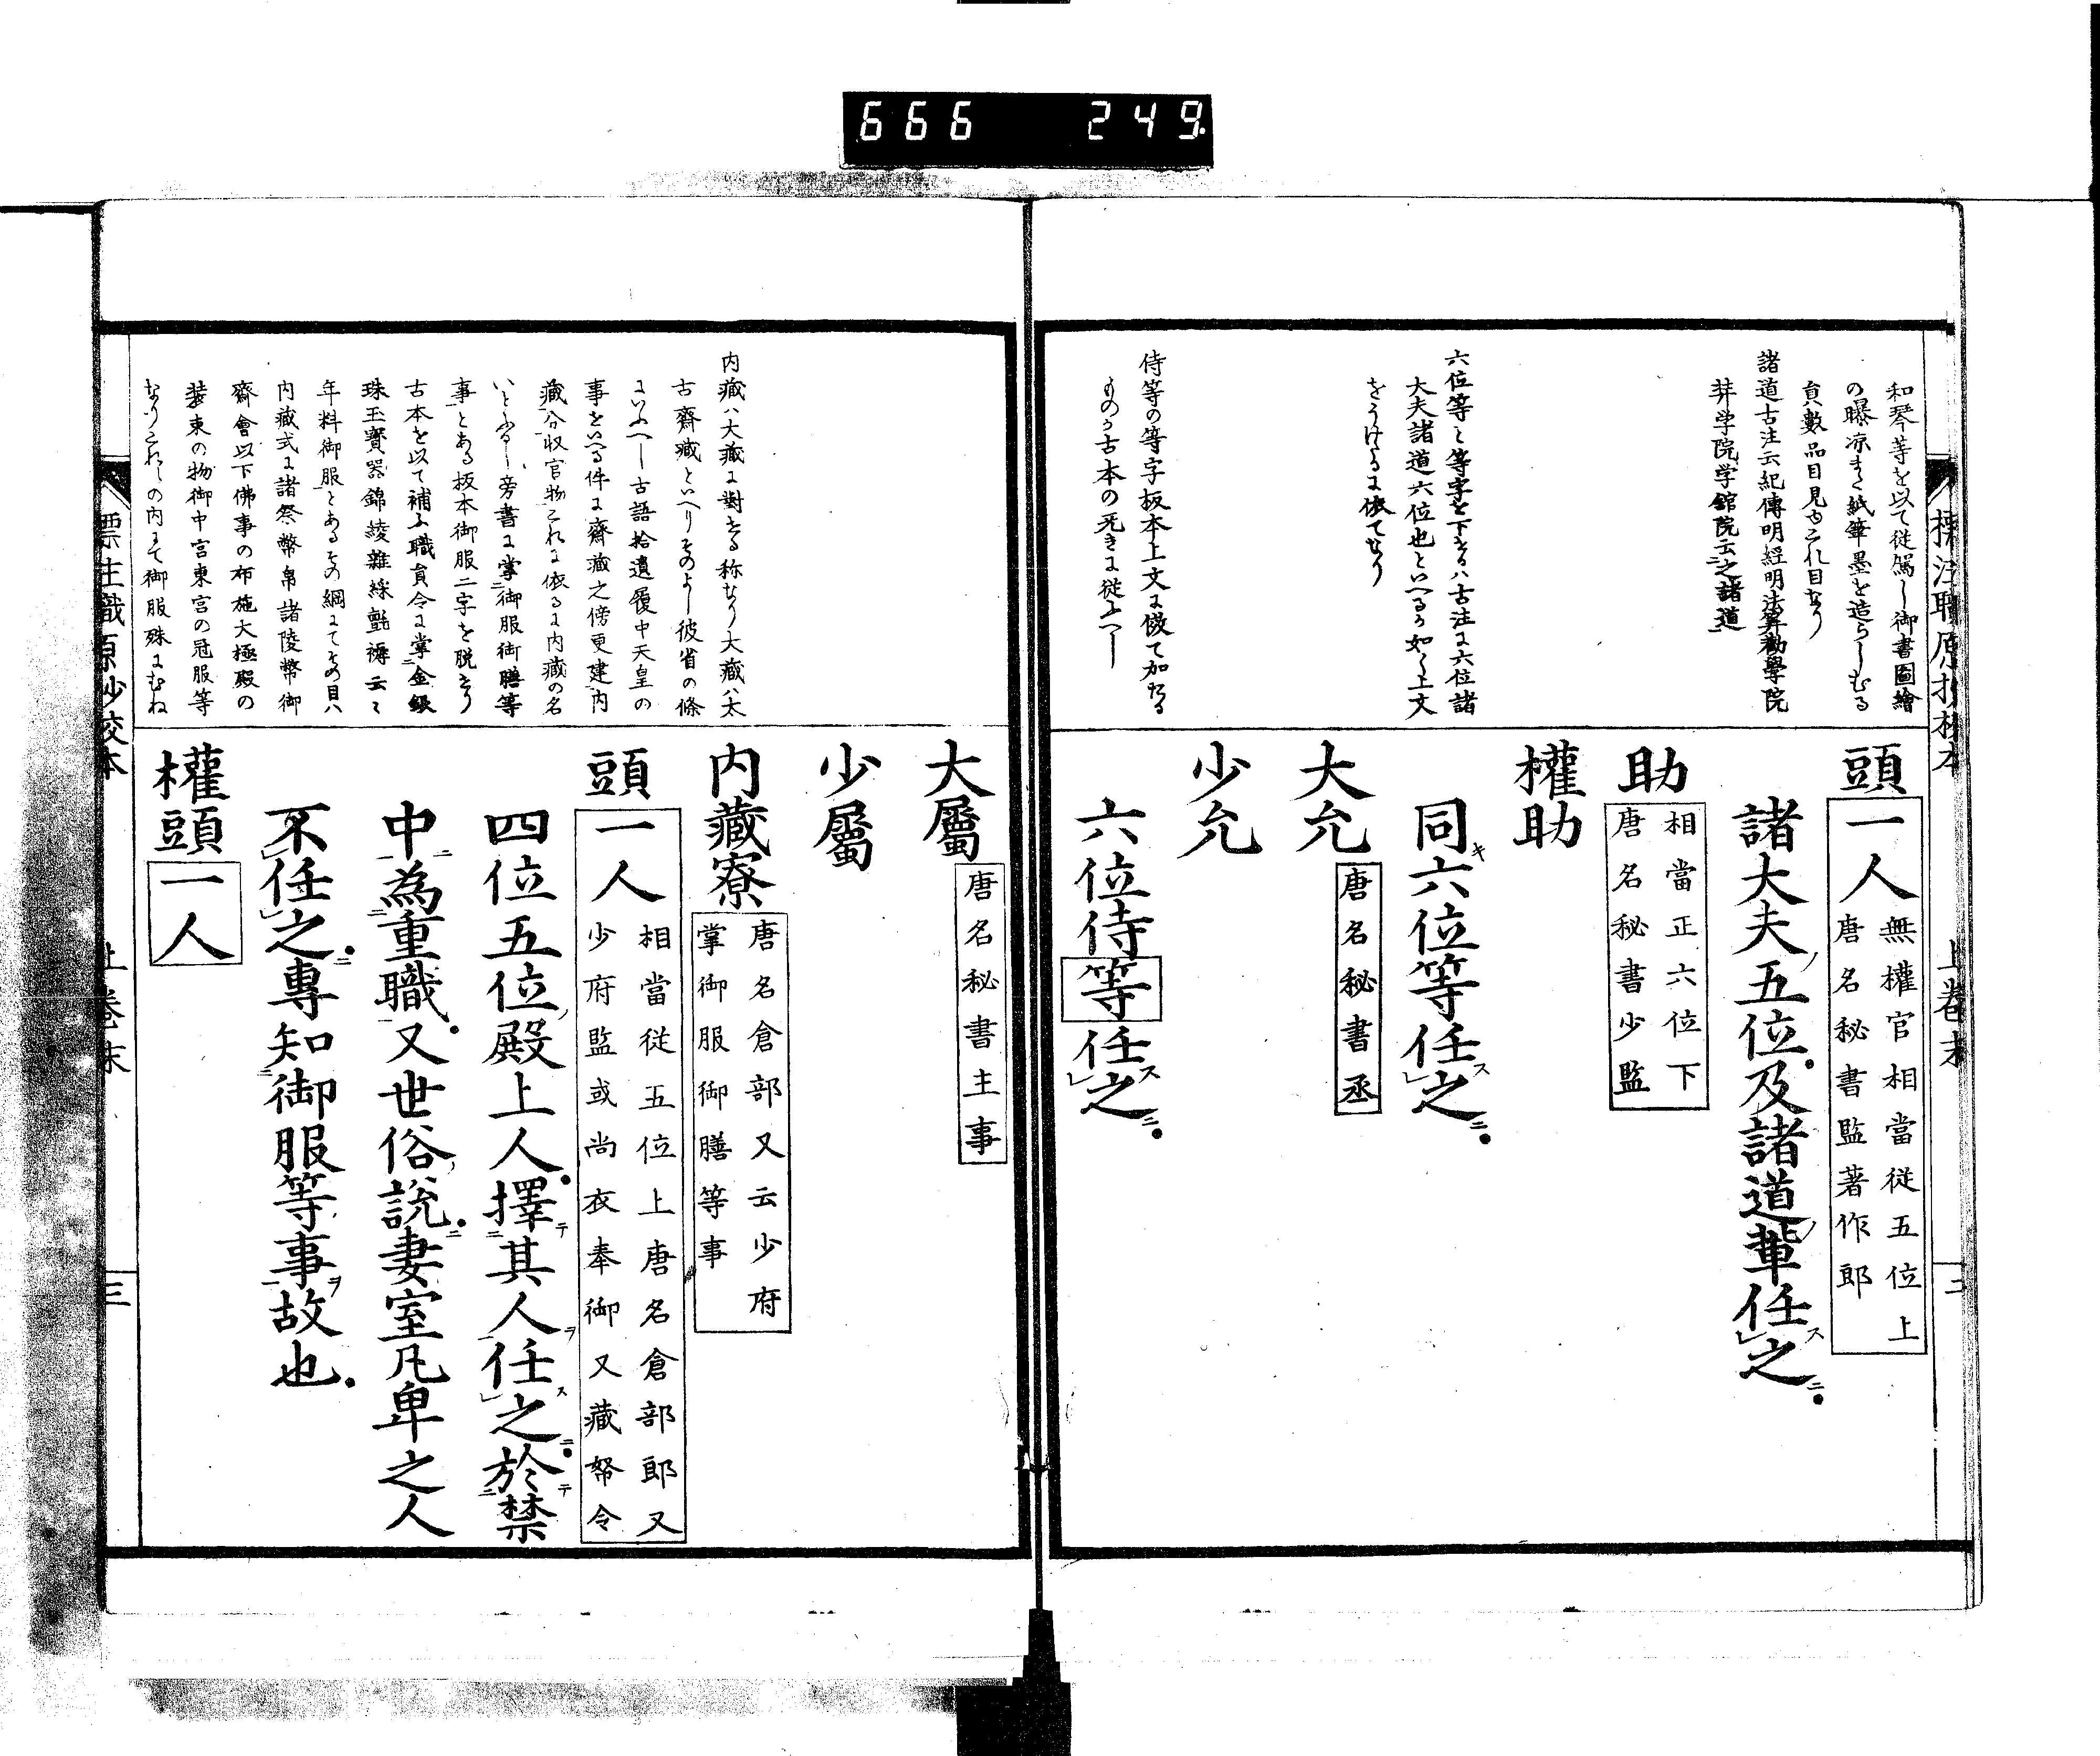 666 249.
和琴等を以て従駕し御書圖繪
の曝凉また紙筆墨を造らしむる
員數品目見ゆこれ目なり
諸道古注云紀傳明經明法算勸學院
弉学院学館院云之諸道
六位等と等字を下せるハ古注に六位諸
大夫諸道六位也といへるか如く上文
をうけたるに依てなり
侍等の等字板本上文に傚て加たる
ものか古本の旡きに従ふへし
頭
一人
無權官相當従五位上
唐名秘書監著作郎
諸大夫五位及諸道輩任之
助
相當正六位下
唐名秘書少監
權助
同六位等任之
大允
唐名秘書丞
少允
六位侍等任之
上卷末
内藏ハ大藏に對せる称なり大藏ハ太
古齋藏といへりそのよし彼省の條
にいふへし古語拾遺履中天皇の
事をいへる件に齋藏之傍更建内
藏分収官物これに依るに内藏の名
いとふるし旁書に掌御服御膳等
事とある板本御服二字を脱せり
古本を以て補ふ職員令に掌金銀
珠玉寶器錦綾雜綵氈褥云々
年料御服とあるその綱にてその目ハ
内藏式に諸祭幣帛諸陵幣御
齋會以下佛事の布施大極殿の
装束の物御中宮東宮の冠服等
なりこれらの内にて御服殊にむね
大屬
唐名秘書主事
少屬
内藏寮
唐名倉部又云少府
掌御服御膳等事
頭
一人
相當従五位上唐名倉部郎又
少府監或尚衣奉御又藏帑令
四位五位殿上人擇其人任之於禁
中為重職又世俗説妻室凡卑之人
不任之專知御服等事故也
權頭
一人
標注職原抄校本
上卷末
三